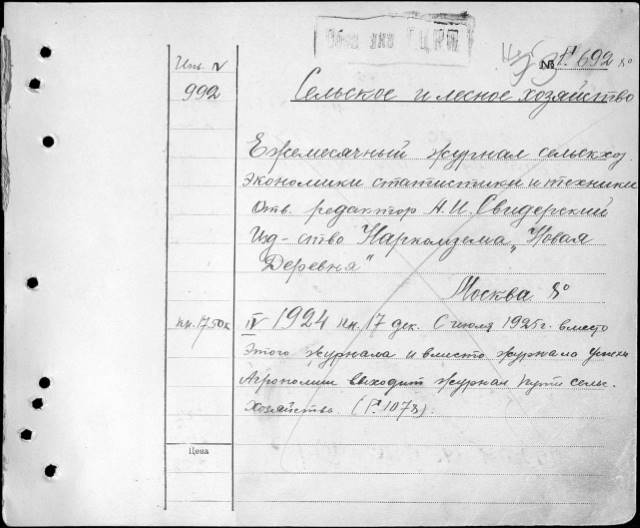 Инв. N
992
№ Г. 692 8°
Сельское и лесное хозяйство
Ежемесячный журнал сельскхоз.
экономики статистики и техники
Отв. редактор А.И. Свидерский
Изд-ство Наркомзема „Новая
Деревня"
Москва 8°
кн. 17.50к
IV 1924 кн. 17 дек. С июля 1925 г. вместо
этого журнала и вместо журнала успехи
Агрономии выходит журнал Пути сельс.
Хозяйства (Г. 1078).
Цена